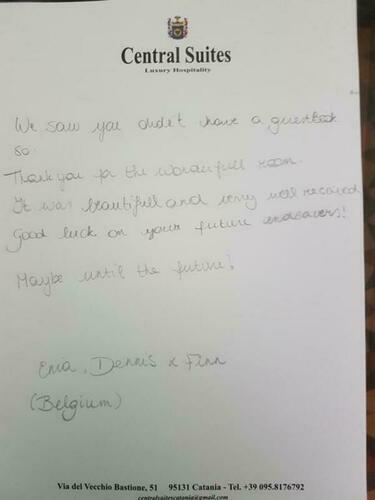 Central Suites
Luxury Hospitality
We saw you didn't have a guestbook
so.
Thank you for the wonderfull room.
It was beautifull and very well received
Good luck on your future endeavers!
Maybe until the future!
Enia, Dennis x Finn
(Belgium)
Via del Vecchio Bastione, 51 95131 Catania - Tel. +39 095.8176792
centralsuitescatania@gmail.com